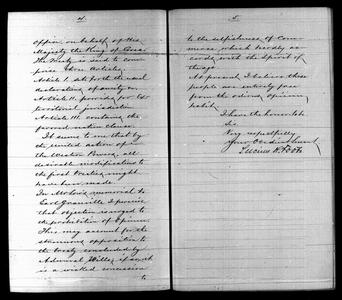 4.
office, on behalf of His
Majesty the King of Corea.
The Treaty is said to com-
prise three Articles.
Article I. sets forth the usual
declarations of amity &c.
Article II. provides for Ex-
territorial jurisdiction
Article III. contains the
favored nation clause.
It seems to me that by
the united action of
the Western Powers, all
desirable modifications to
the first Treaties, might
have been made.
In memorial to
Earl Granville I perceive
that objection is urged to
the prohibition of Opium.
This may account for the
strenuous opposition to
the treaty concluded by
Admiral Willes, if so, it
is a wicked concession
to
5.
to the selfishness of Com-
merce which hardly ac-
cords with the Spirit of
the age.
At present, I believe these
people are entirely free
from the odious opium
habit.
I have the honor to be
Sir
Very respectfully
Your Obedient Servant
Lucius H. Foote